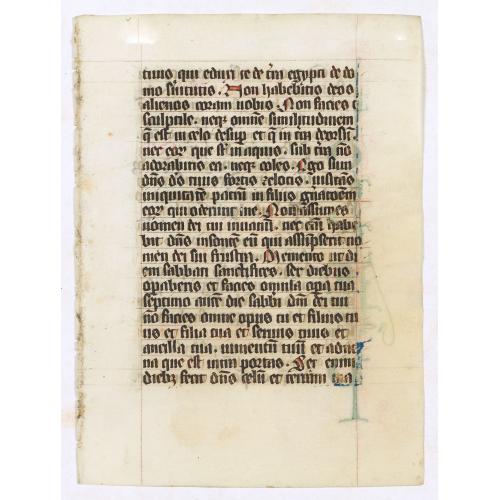 tuus qui eduxi te de tra egypti de do
mo seruitutis. Non habebitis deos
alienos coram uobis. Non facies t
sculptile. neqz omnem similitudinem
q est in celo desup et q in tra deorsu.
nec eor que st in aquis. sub tra no
adorabitis ea. neqz coles. Ego sum
dns ds tuus fortis zelotes. uisitans
iniquitate patru in filiis
eor qui oderunt me. Non assumes
nomen dei tui inuanu. nec eni habe
bit dns insonte eu qui assupserit no
men dei sui frustra. Memento ut di
em sabbati sanctifices. Sex diebus
opaberis et facies omnia opa tua
septimo aute die sabbi dni dei tui
no facies omne opus tu et filius tu
us et filia tua et seruus tuus et
ancilla tua. iumentu tuu et adue
na que est intra portas. Sex enim
diebz fecit dns celu et terram